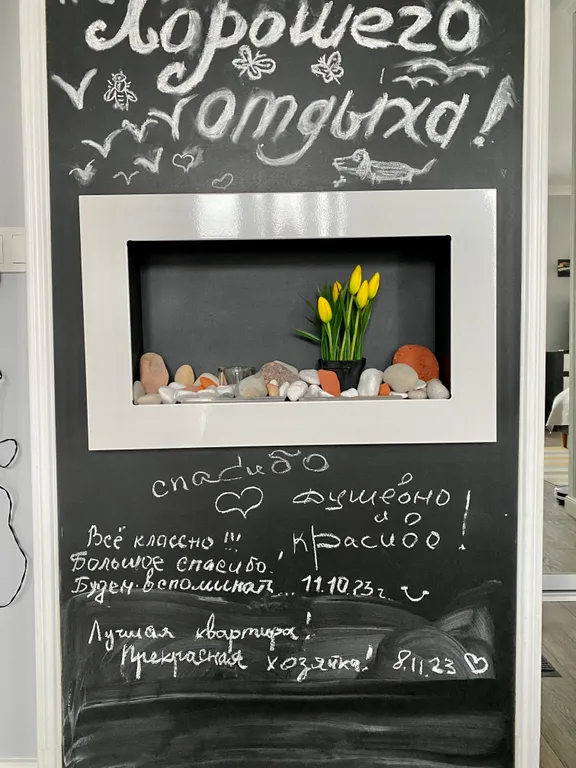 Хорошего
отдыха!
спасибо
душевно
и
красиво!
Всё классно!!!
Большое спасибо,
Будем вспоминать... 11.10.23г.
Лучшая квартира!
Прекрасная хозяйка! 8.11.23